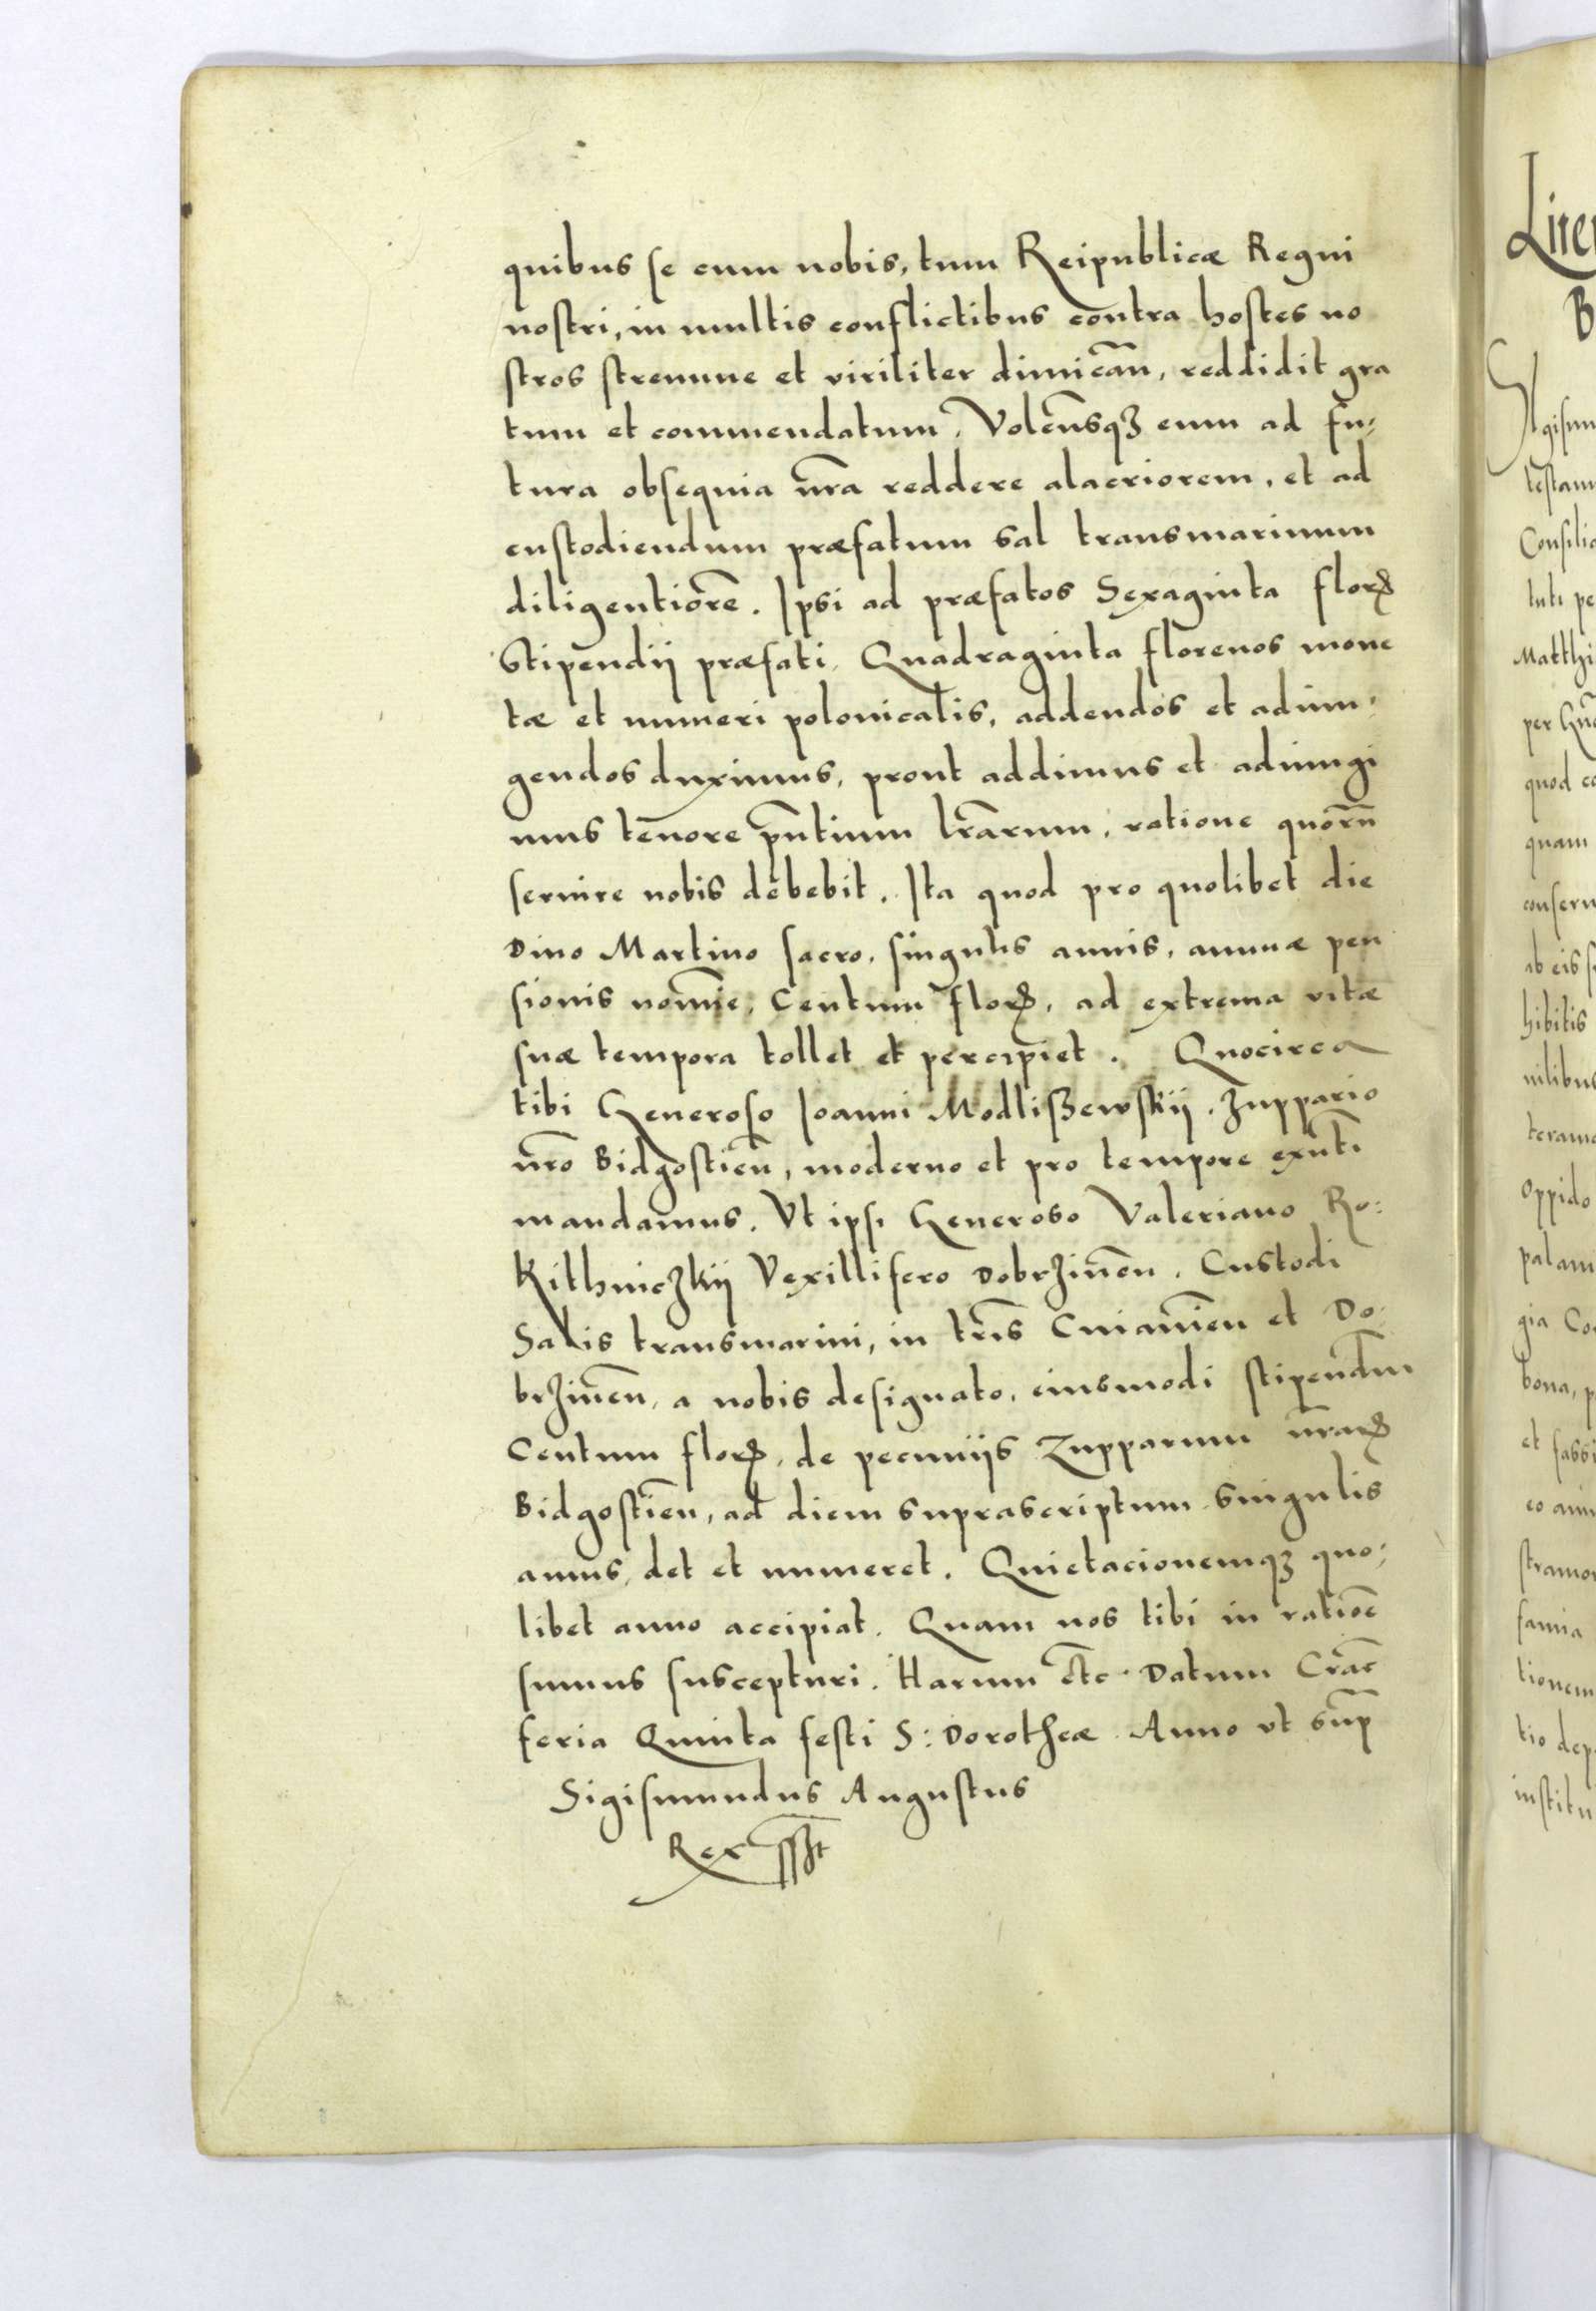 quibus se cum nobis, tum Reipublicæ Regni
nostri, in multis conflictibus contra hostes no
stros strenuue et viriliter dimicañ, reddidit gra
tum et commendatum. Voleñsqꝫ eum ad fu⸗
tura obsequia nr̃a reddere alacriorem, et ad
custodiendum præfatum sal transmarinum
diligentiorẽ. Ipsi ad præfatos Sexaginta florꝝ
Stipendij præfati, Quadraginta florenos mone
tæ et numeri polonicalis, addendos et adiun⸗
gendos duximus, prout addimus et adiungi
mus tenore pñtium lr̃arum, ratione quorũ
seruire nobis debebit. Ita quod pro quolibet die
Diuo Martino sacro, singulis annis, annuæ pen
sionis noĩe, Centum florꝝ, ad extrema vitæ
suæ tempora tollet et percipiet. Quocirca
tibi Generoso Ioanni Modlißewskij, Zuppario
nr̃o Bidgostieñ, moderno et pro tempore exñti
mandamus. Vt ipsi Generoso Valeriano Ro:
Kithniczkij Vexillifero Dobrzineñ. Custodi
Salis transmarini, in tr̃is Cuiauieñ et Do:
brzineñ, a nobis designato, eiusmodi stipendm̃
Centum florꝝ, de pecunijs Zupparum nr̃aꝝ
Bidgostieñ, ad diem suprascriptum singulis
annis, det et numeret. Quietacionemqꝫ quo⸗
libet anno accipiat. Quam nos tibi in ratioẽ
sumus suscepturi. Harum etc̃ Datum Crac̃
feria Quinta festi S: Dorotheæ Anno vt sup̃
Sigismundus Augustus
Rex ssꝫt
Liter
B
Sigismu
testam
Consilia
luti pe
Matthi
per Gñ
quod co
quam
conseru
ab eis s
hibitis
nilibus
terama
Oppido
palam
gia Co
bona, p
et fassi
eo ani
stramo
famia
tionem
tio dep
institu